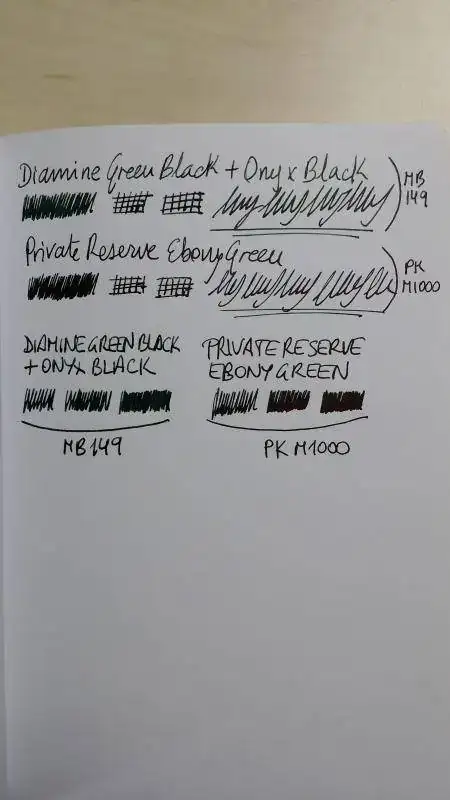 Diamine Green Black + Onyx Black
MB
149
Private Reserve Ebony Green
PK
M1000
DIAMINE GREEN BLACK
+ ONYX BLACK
PRIVATE RESERVE
EBONY GREEN
MB149
PK M1000